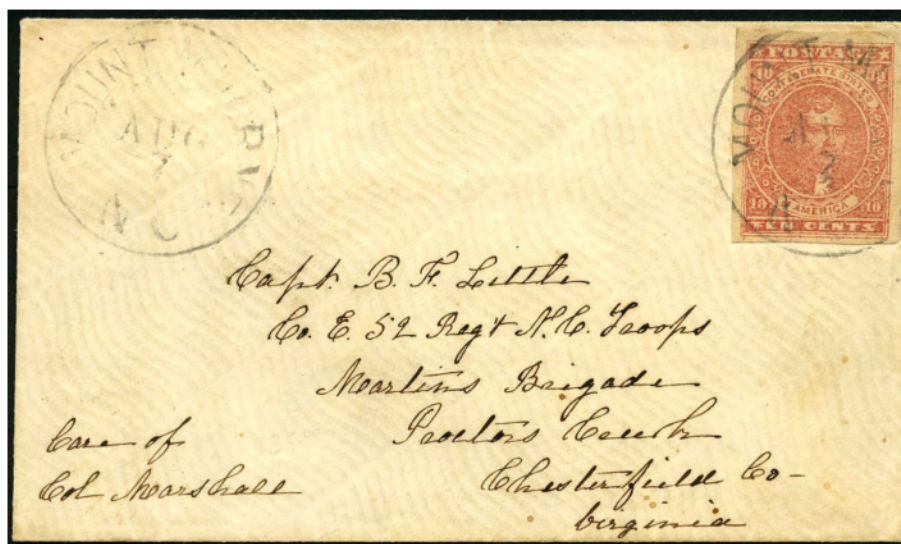 MOUNT
AUG
7
N C
POSTAGE
10 10
CONFEDERATE STATES
OF AMERICA
10 10
TEN CENTS
MOUNT
7
N
Capt. B. F. Little
Co. E. 52 Regt N. C. Troops
Martins Brigade
Proctors Creek
Chesterfield Co-
Virginia
Care of
Col Marshall